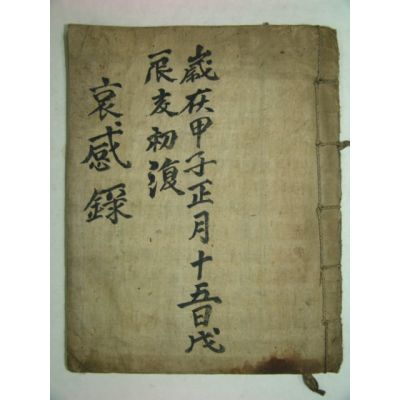 歲在甲子正月十五日戊
辰友初復
哀感錄